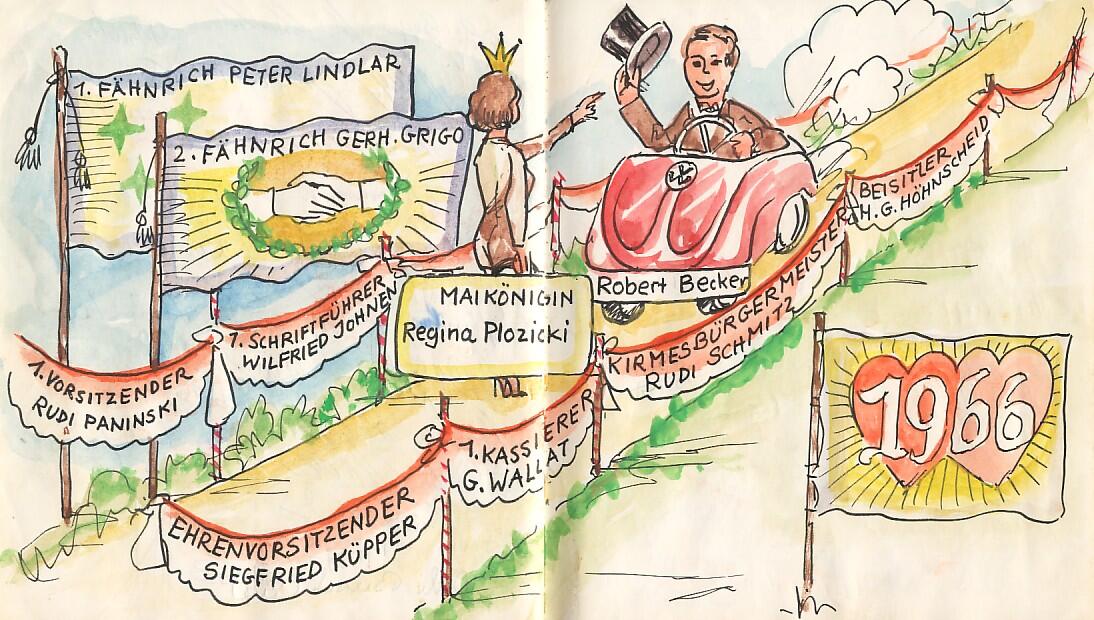 1. FÄHNRICH PETER LINDLAR
2. FÄHNRICH GERH. GRIGO
1. VORSITZENDER
RUDI PANINSKI
1. SCHRIFTFÜHRER
WILFRIED JOHNEN
MAIKÖNIGIN
Regina Plozicki
Robert Becker
EHRENVORSITZENDER
SIEGFRIED KÜPPER
1. KASSIERER
G. WALLAT
KIRMESBÜRGERMEISTER
RUDI SCHMITZ
BEISITZER
H. G. HÖHNSCHEID
1966